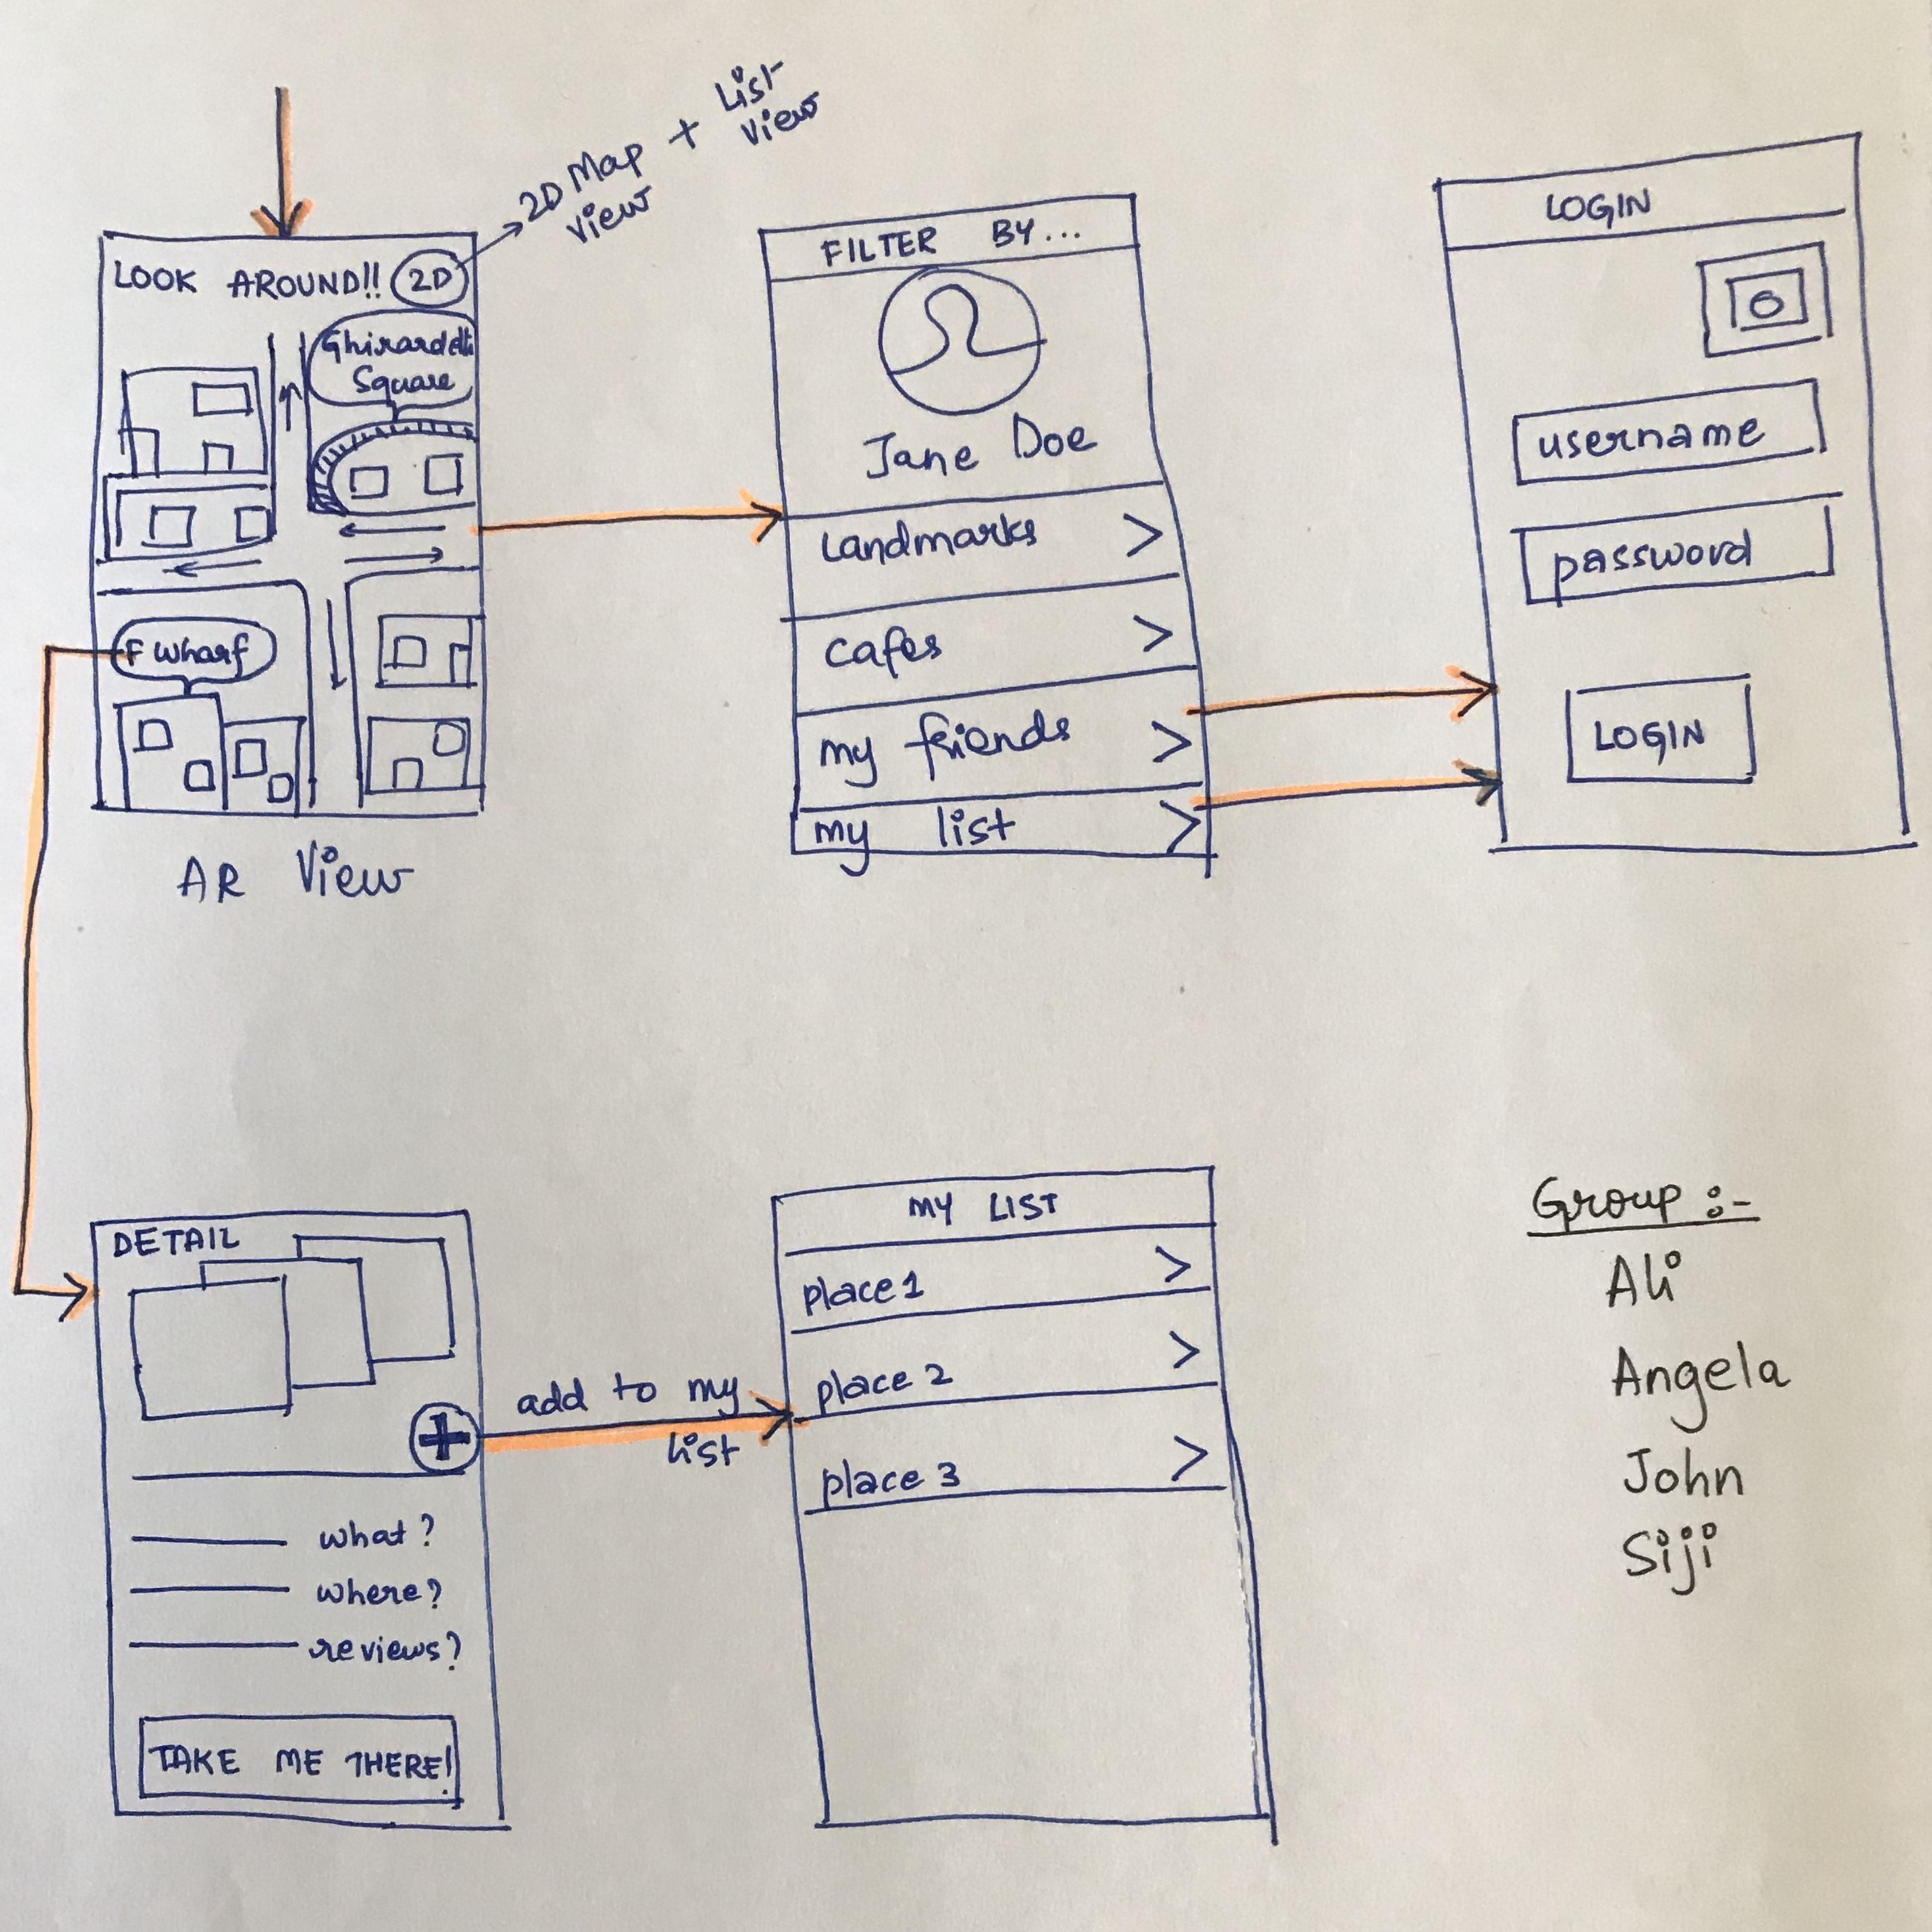 2D Map + List
View View
LOOK AROUND!! 2D
Ghirardelli
Square
F Wharf
AR View
FILTER BY...
Jane Doe
Landmarks >
cafes >
my friends >
my list >
LOGIN
username
password
LOGIN
DETAIL
+
what?
where?
reviews?
TAKE ME THERE!
add to my
list
MY LIST
place 1 >
place 2 >
place 3 >
Group :-
Ali
Angela
John
Siji